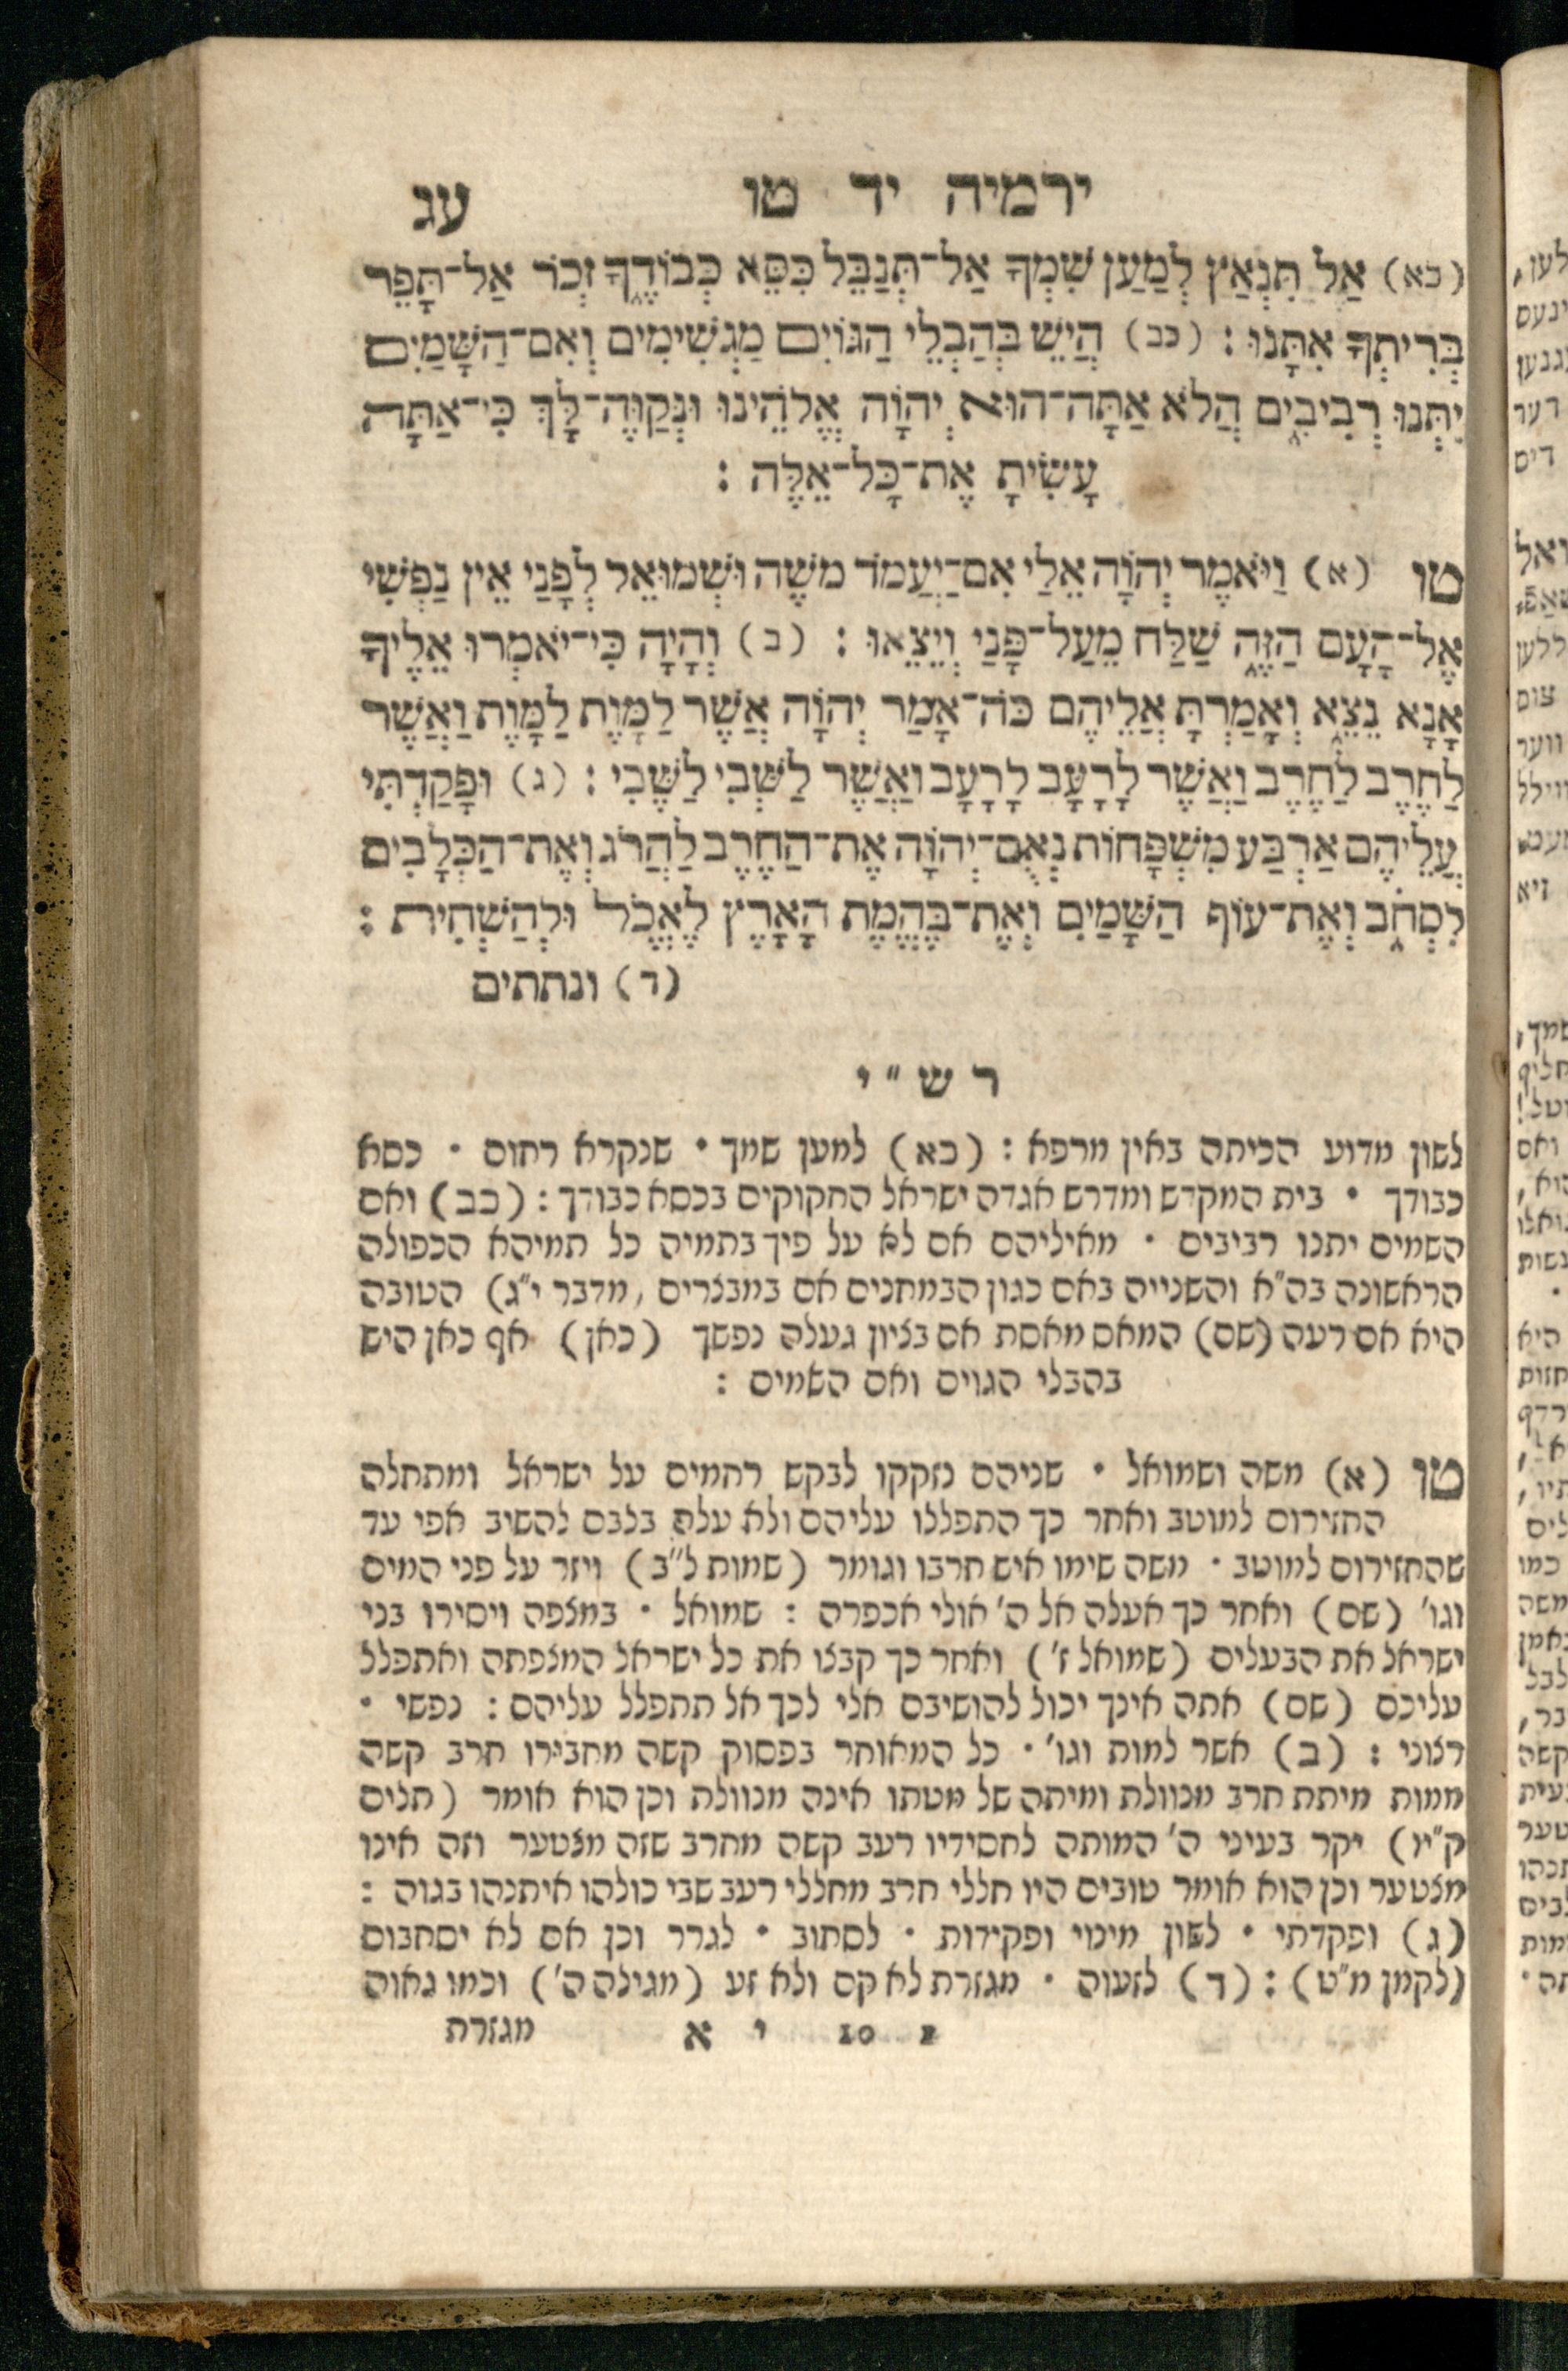 ירמיה יד טו עג
(כא) אַל תִּנְאַץ לְמַעַן שִׁמְךָ אַל־תְּנַבֵּל כִּסֵּא כְבוֹדֶךָ זְכֹר אַל־תָּפֵר
בְּרִיתְךָ אִתָּנוּ : (כב) הֲיֵשׁ בְּהַבְלֵי הַגּוֹיִם מַגְשִׁימִים וְאִם־הַשָּׁמַיִם
יִתְּנוּ רְבִיבִים הֲלֹא אַתָּה־הוּא יְהוָֹה אֱלֹהֵינוּ וּנְקַוֶּה־לָּךְ כִּי־אַתָּה
עָשִׂיתָ אֶת־כָּל־אֵלֶּה :
טו (א) וַיֹּאמֶר יְהוָֹה אֵלַי אִם־יַעֲמֹד משֶׁה וּשְׁמוּאֵל לְפָנַי אֵין נַפְשִׁי
אֶל־הָעָם הַזֶּה שַׁלַּח מֵעַל־פָּנַי וְיֵצֵאוּ : (ב) וְהָיָה כִּי־יֹאמְרוּ אֵלֶיךָ
אָנָא נֵצֵא וְאָמַרְתָּ אֲלֵיהֶם כֹּה־אָמַר יְהוָֹה אֲשֶׁר לַמָּוֶת לַמָּוֶת וַאֲשֶׁר
לַחֶרֶב לַחֶרֶב וַאֲשֶׁר לָרָעָב לָרָעָב וַאֲשֶׁר לַשְּׁבִי לַשֶּׁבִי : (ג) וּפָקַדְתִּי
עֲלֵיהֶם אַרְבַּע מִשְׁפָּחוֹת נְאֻם־יְהוָֹה אֶת־הַחֶרֶב לַהֲרֹג וְאֶת־הַכְּלָבִים
לִסְחֹב וְאֶת־עוֹף הַשָּׁמַיִם וְאֶת־בֶּהֱמַת הָאָרֶץ לֶאֱכֹל וּלְהַשְׁחִית :
(ד) ונתתים
ר ש " י
לשון מדוע הכיתה באין מרפא : (כא) למען שמך • שנקרא רחום • כסא
כבודך • בית המקדש ומדרש אגדה ישראל החקוקים בכסא כבודך : (כב) ואם
השמים יתנו רביבים • מאיליהם אם לא על פיך בתמיה כל תמיהא הכפולה
הראשונה בה"א והשנייה באם כגון הבמחנים אם במבצרים (מדבר י"ג) הטובה
היא אם רעה (שם) המאס מאסת אם בציון געלה נפשך (כאן) אף כאן היש
בהבלי הגוים ואם השמים :
טו (א) משה ושמואל • שניהם נזקקו לבקש רחמים על ישראל ומתחלה
החזירום למוטב ואחר כך התפללו עליהם ולא עלה בלבם להשיב אפי עד
שהחזירום למוטב • משה שימו איש חרבו וגומר (שמות ל"ב) ויזר על פני המים
וגו' (שם) ואחר כך אעלה אל ה' אולי אכפרה : שמואל • במצפה ויסירו בני
ישראל את הבעלים (שמואל ז') ואחר כך קבצו את כל ישראל המצפתה ואתפלל
עליכם (שם) אתה אינך יכול להושיבם אלי לכך אל תתפלל עליהם : נפשי •
רצוני : (ב) אשר למות וגו' • כל המאוחר בפסוק קשה מחבירו חרב קשה
ממות מיתת חרב מנוולת ומיתה של מטתו אינה מנוולת וכן הוא אומר (תלים
ק"יו) יקר בעיני ה' המותה לחסידיו רעב קשה מחרב שזה מצטער וזה אינו
מצטער וכן הוא אומר טובים היו חללי חרב מחללי רעב שבי כולהו איתנהו בגוה :
(ג) ופקדתי • לשון מינוי ופקידות • לסחוב • לגרר וכן אם לא יסחבום
(לקמן מ"ט) : (ד) לזעוה • מגזרת לא קם ולא זע (מגילה ה') וכמו גאוה
2 10 י א מגזרת